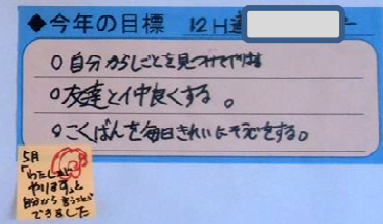 ◆今年の目標 12H
○自分からしごとを見つけてやりは
○友達と仲良くする。
○こくばんを毎日きれいにそうじをする。
5月
「わたしが
やります。」と
自分から言うことが
できました